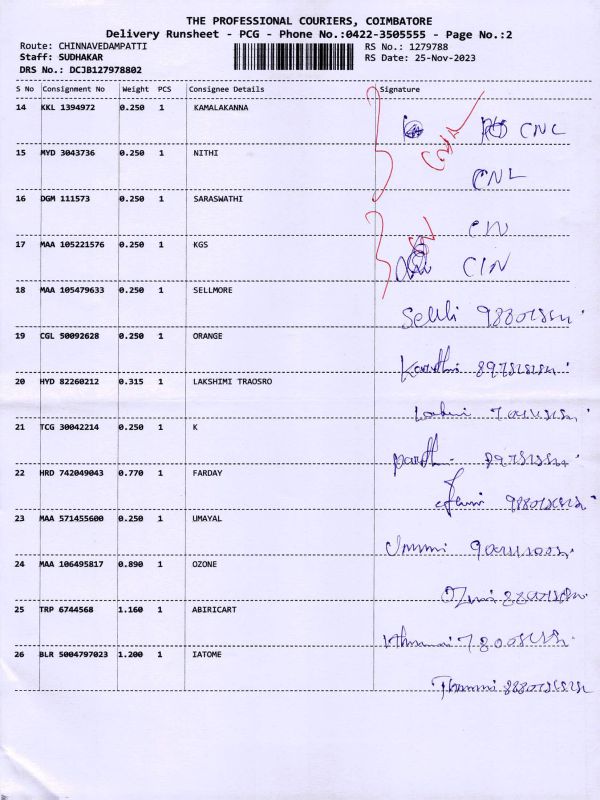 THE PROFESSIONAL COURIERS, COIMBATORE
Delivery Runsheet - PCG - Phone No.:0422-3505555 - Page No.:2
Route: CHINNAVEDAMPATTI RS No.: 1279788
Staff: SUDHAKAR RS Date: 25-Nov-2023
DRS No.: DCJB127978802
S No Consignment No Weight PCS Consignee Details Signature
14 KKL 1394972 0.250 1 KAMALAKANNA
CNL
15 MYD 3043736 0.250 1 NITHI
CNL
16 DGM 111573 0.250 1 SARASWATHI
CN
17 MAA 105221576 0.250 1 KGS
CIN
18 MAA 105479633 0.250 1 SELLMORE
19 CGL 50092628 0.250 1 ORANGE
20 HYD 82260212 0.315 1 LAKSHIMI TRAOSRO
21 TCG 30042214 0.250 1 K
22 HRD 742049043 0.770 1 FARDAY
23 MAA 571455600 0.250 1 UMAYAL
24 MAA 106495817 0.890 1 OZONE
25 TRP 6744568 1.160 1 ABIRICART
26 BLR 5004797023 1.200 1 IATOME